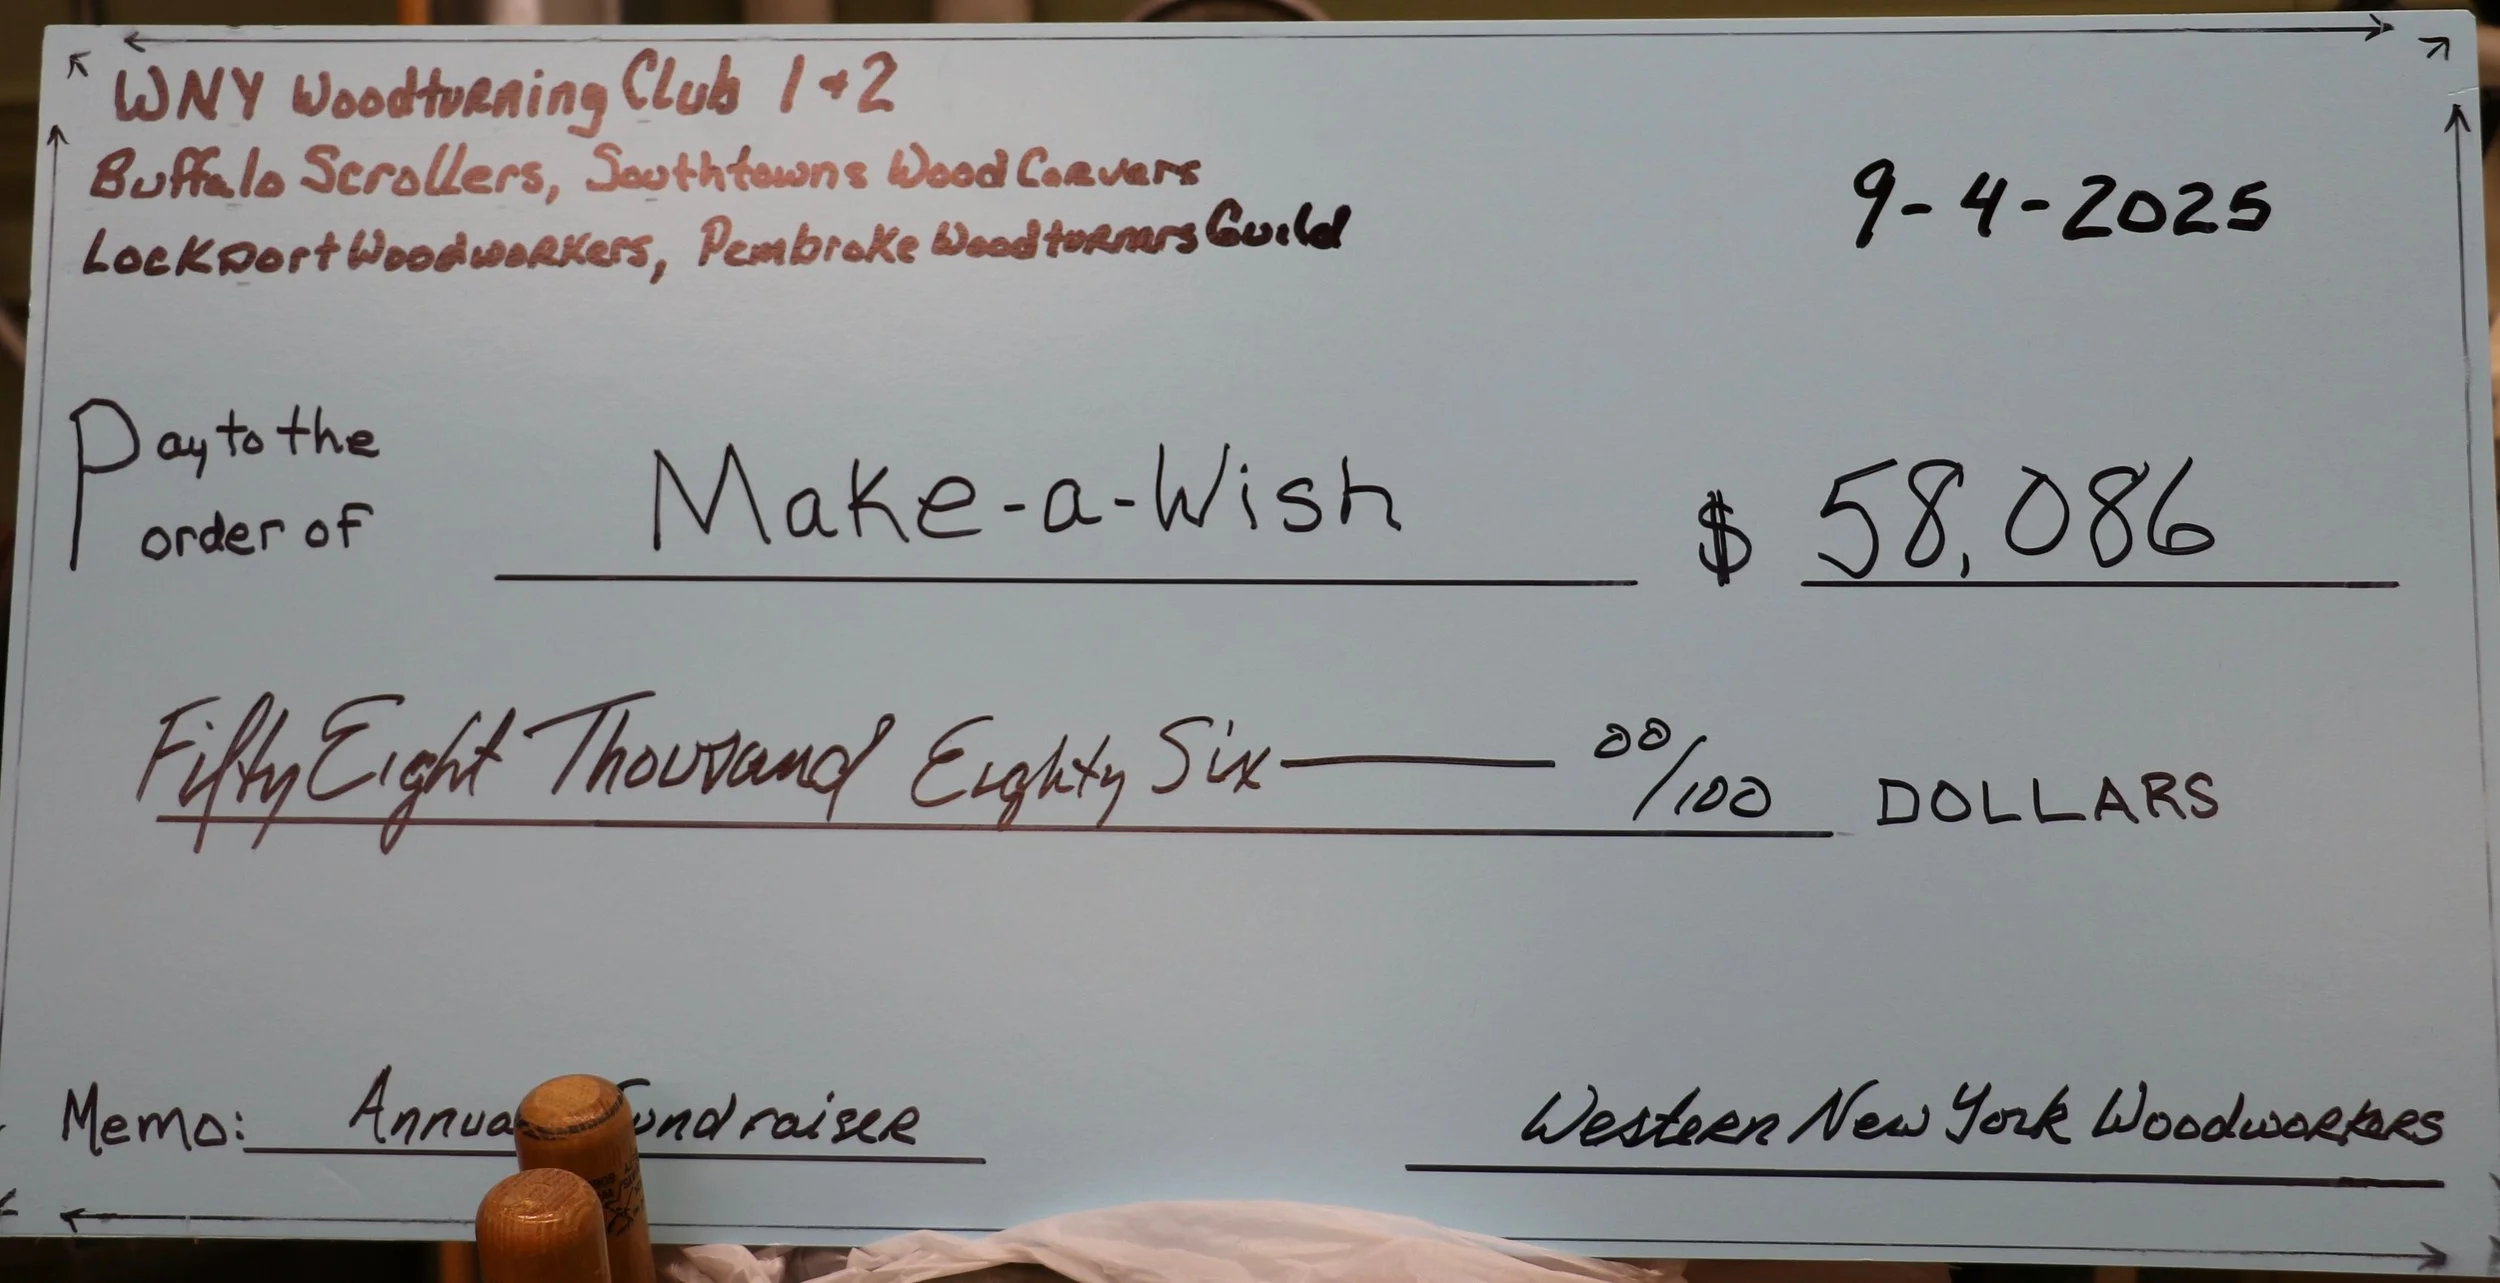 WNY Woodturning Club 1+2
Buffalo Scrollers, Southtowns Wood Carvers
Lockport Woodworkers, Pembroke Woodturners Guild
9-4-2025
Pay to the
order of
Make-a-Wish
$ 58,086
Fifty Eight Thousand Eighty Six 00/100 DOLLARS
Memo: Annual Fundraiser
Western New York Woodworkers